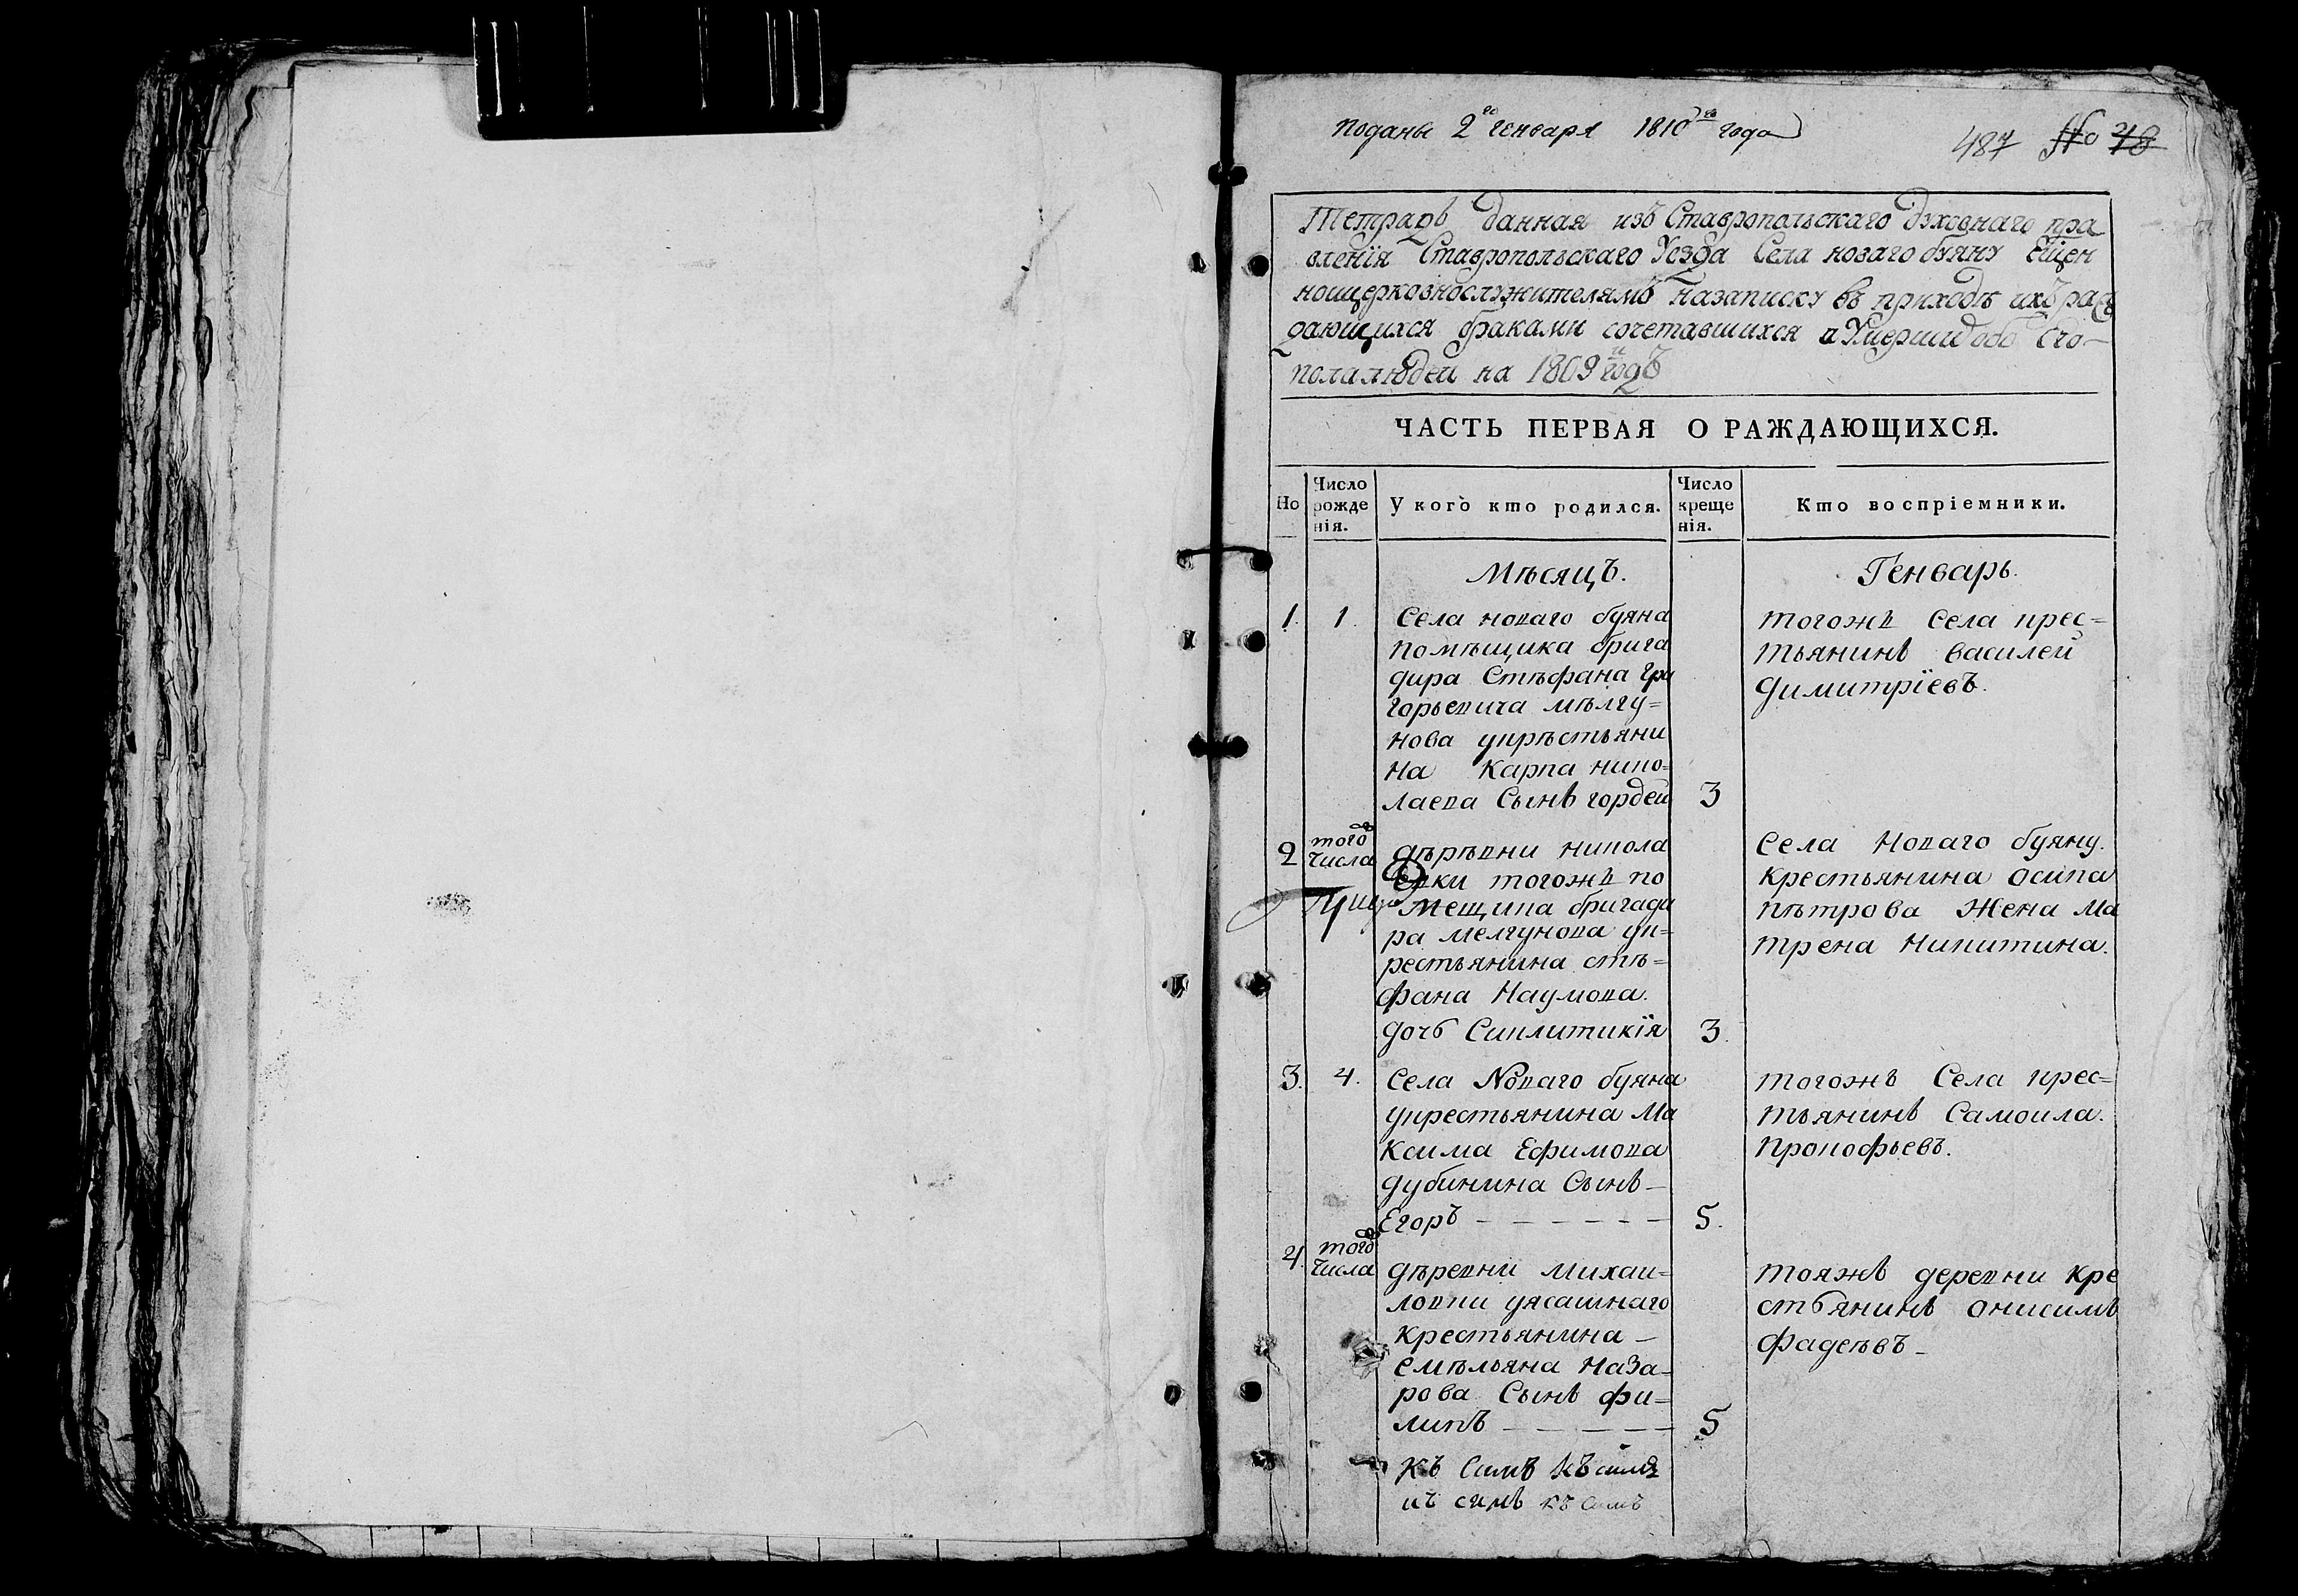 поданы 2го Генваря 1810го года
487 No 48
Тетрадь данная изъ Ставропольскаго духовнаго пра
вленїя Ставропольскаго Уезда Села новаго буяну Сщен
ноцерковнослужителямъ назаписку въ приходѣ ихъ раж
дающихся браками сочетавшихся и Умершихъ обоего
полалюдей на 1809й годъ
ЧАСТЬ ПЕРВАЯ О РАЖДАЮЩИХСЯ.
Но
Число рожде нія.
У кого кто родился.
Число креще нія.
Кто воспріемники.
Мѣсяцъ.
Генварь.
1. 1.
Села новаго буяна
помѣщика брига
дира Стѣфана Гри
горьевича мѣлгу=
нова укрѣстьяни
на Карпа нико=
лаева Сынъ гордей 3
тогожъ Села крес=
тьянинъ василей
димитрїевъ.
2 того числа
дѣрѣвни никола
евки тогожъ по
мещика бригади
ра мелгунова ук=
рестьянина стѣ=
фана Наумова.
дочь Синклитикїя 3.
Села Новаго буяну.
крестьянина осипа
пѣтрова жена Ма
трена никитина.
3. 4.
Села Новаго буяна
укрестьянина Ма
ксима Ефимова
дубинина Сынъ —
Егоръ — — — — — — 5.
тогожъ Села крес=
тьянинъ Самоила.
прокофьевъ.
4. того числа
дѣревни михаи=
ловки уясашнаго
крестьянина —
емѣльяна Наза=
рова Сынъ фи=
липъ — — — — — 5
тояжъ деревни кре
стьянинъ онисимъ
фадѣевъ —
Къ симъ Къ симъ
къ симъ къ симъ